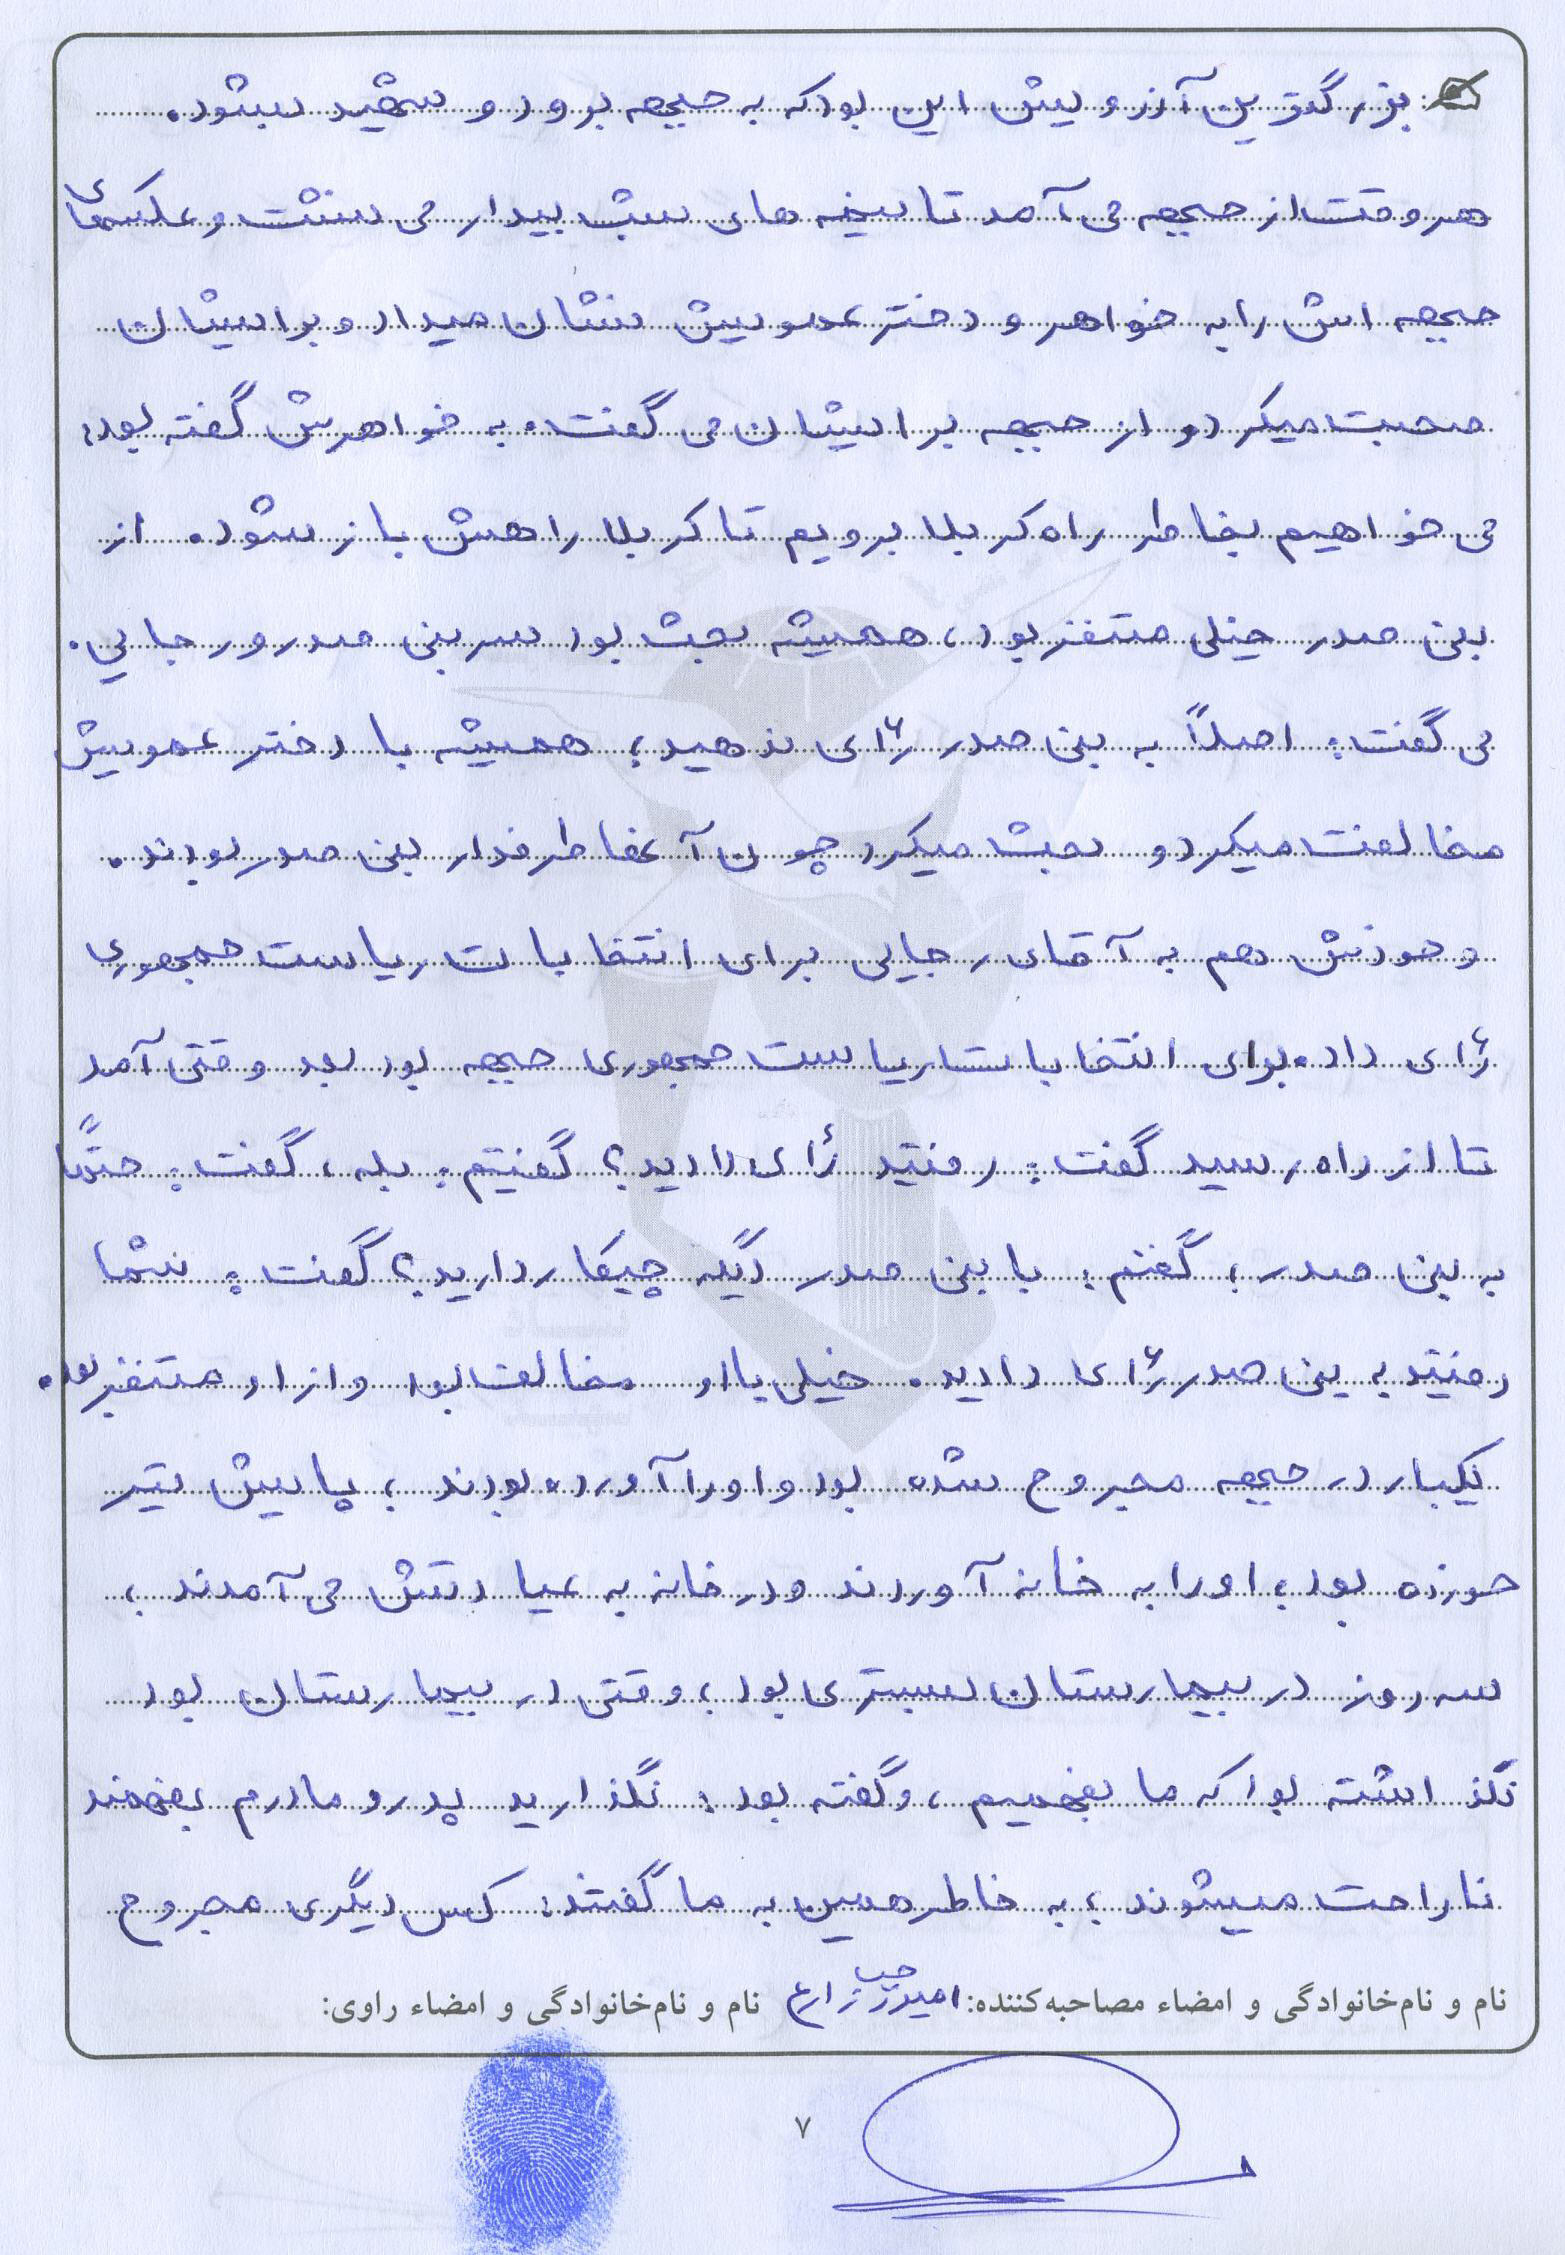 بزرگترین آرزویش این بود که به جبهه برود و شهید بشود.
هر وقت از جبهه می آمد تا نیمه های شب بیدار می نشست و عکسهای
جبهه اش را به خواهر و دختر عمویش نشان میداد و برایشان
صحبت میکرد و از جبهه برایشان می گفت. به خواهرش گفته بود:
می خواهیم بخاطر راه کربلا برویم تا کربلا راهش باز شود. از
بنی صدر خیلی متنفر بود، همیشه بحث بود سر بنی صدر و رجایی.
می گفت: اصلاً به بنی صدر رأی ندهید؛ همیشه با دختر عمویش
مخالفت میکرد و بحث میکرد چون آنها طرفدار بنی صدر بودند.
و خودش هم به آقای رجایی برای انتخابات ریاست جمهوری
رأی داد. برای انتخابات ریاست جمهوری جبهه بود بعد وقتی آمد
تا از راه رسید گفت: رفتید رأی دادید؟ گفتیم: بله، گفت: حتماً
به بنی صدر؛ گفتم: با بنی صدر دیگه چیکار دارید؟ گفت: شما
رفتید به بنی صدر رأی دادید. خیلی با او مخالف بود و از او متنفر بود.
یکبار در جبهه مجروح شده بود و او را آورده بودند؛ پایش تیر
خورده بود؛ او را به خانه آوردند و در خانه به عیادتش می آمدند؛
سه روز در بیمارستان بستری بود؛ وقتی در بیمارستان بود
نگذاشته بود که ما بفهمیم، و گفته بود: نگذارید پدر و مادرم بفهمند
ناراحت میشوند؛ به خاطر همین به ما گفتند: کس دیگری مجروح
نام و نام‌خانوادگی و امضاء مصاحبه‌کننده: زارع نام و نام‌خانوادگی و امضاء راوی:
۷